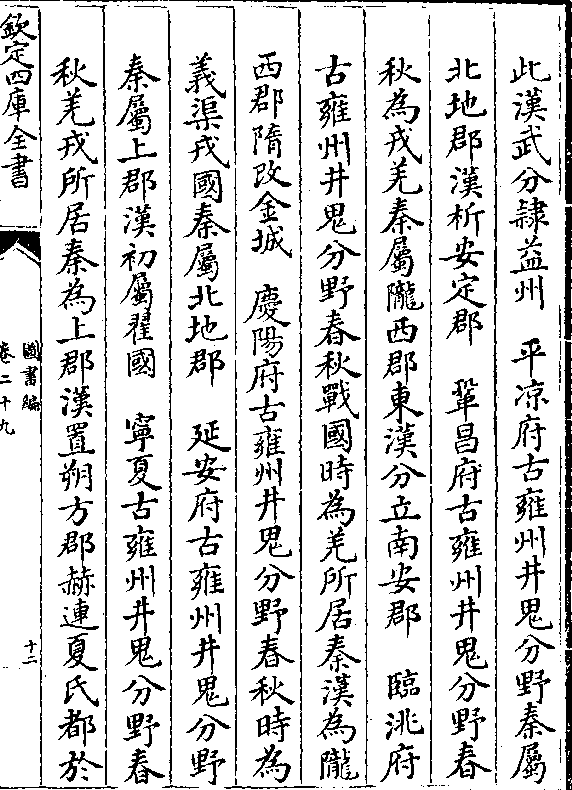 此漢武分隷益州　平凉府古雍州井鬼分野秦屬
北地郡漢析安定郡　鞏昌府古雍州井鬼分野春
秋為戎羌秦屬隴西郡東漢分立南安郡　臨洮府
古雍州井鬼分野春秋戰國時為羌所居秦漢為隴
西郡隋改金城　慶陽府古雍州井鬼分野春秋時為
義渠戎國秦屬北地郡　延安府古雍州井鬼分野
秦屬上郡漢初屬翟國　寧夏古雍州井鬼分野春
秋羌戎所居秦為上郡漢置朔方郡赫連夏氏都於
欽定四庫全書
圖書編
卷二十九
十二